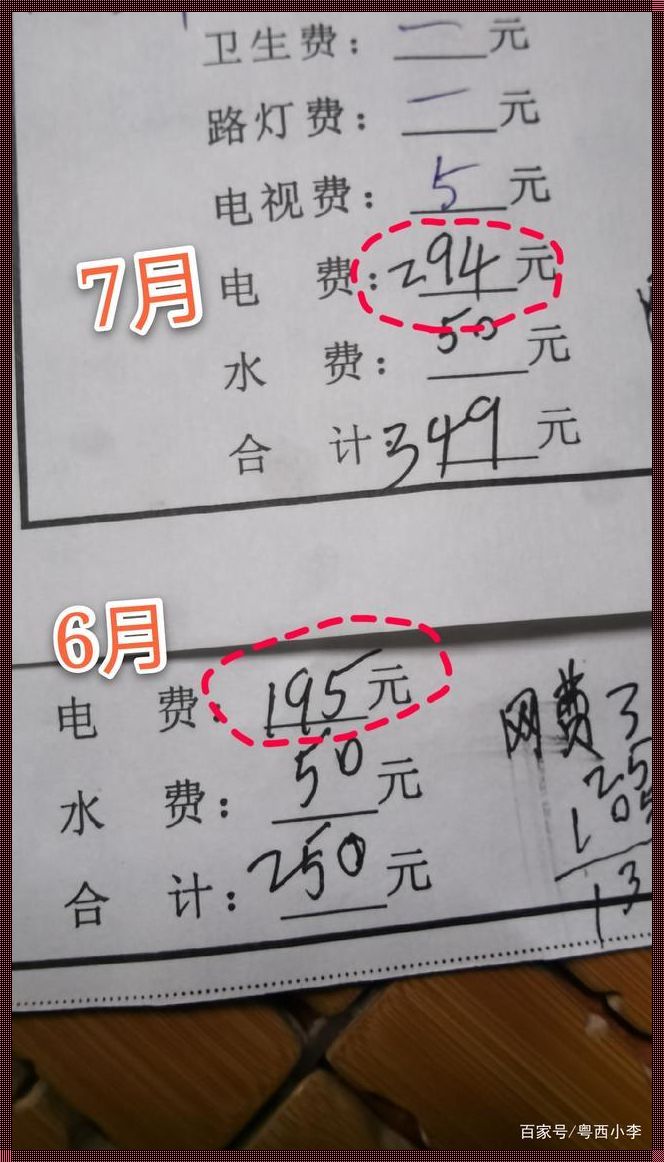 卫生费：一元
路灯费：一元
电视费：5元
7月
电 费：294元
水 费：50元
合 计：349元
6月
电 费：195元
水 费：50元
合 计：250元
网费3
25
105
13
百家号/粤西小李